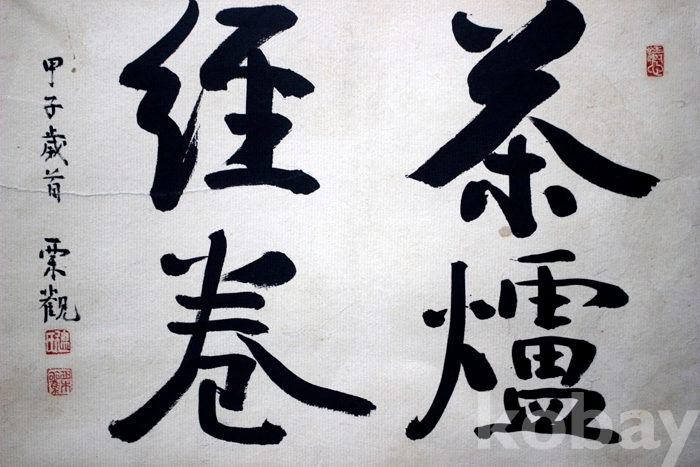 茶爐
經卷
甲子歲首 栗觀
kobay